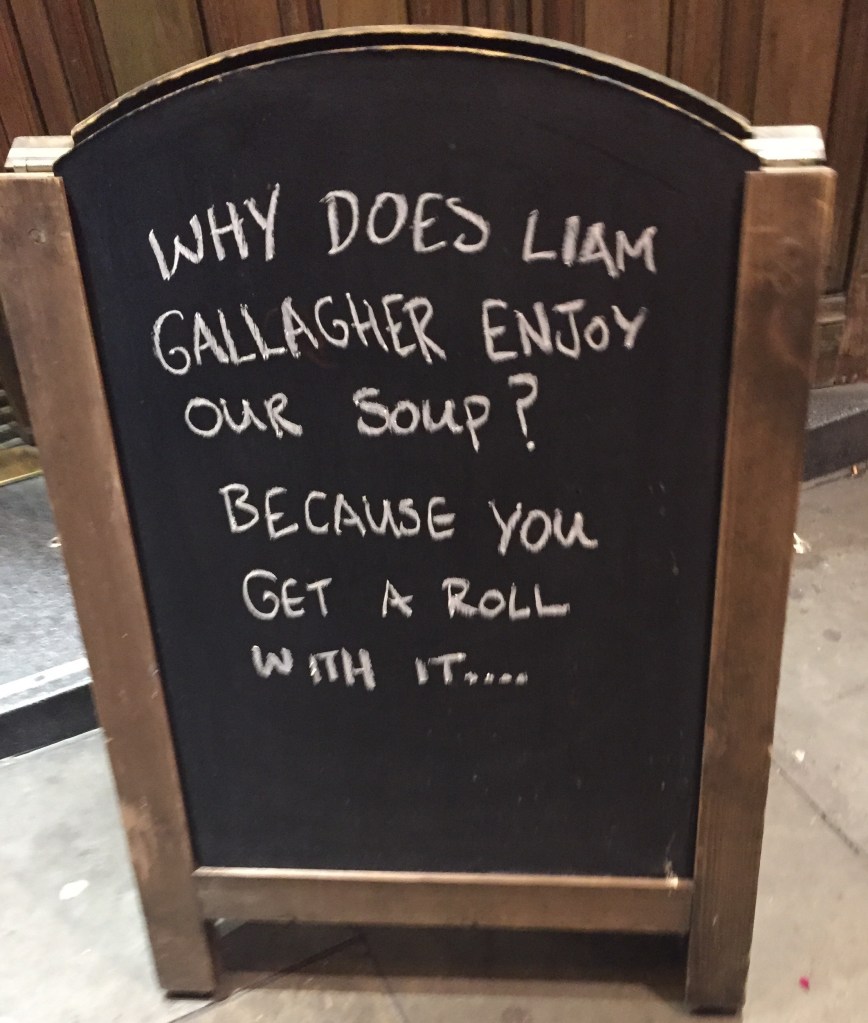 WHY DOES LIAM
GALLAGHER ENJOY
OUR SOUP?
BECAUSE YOU
GET A ROLL
WITH IT.....